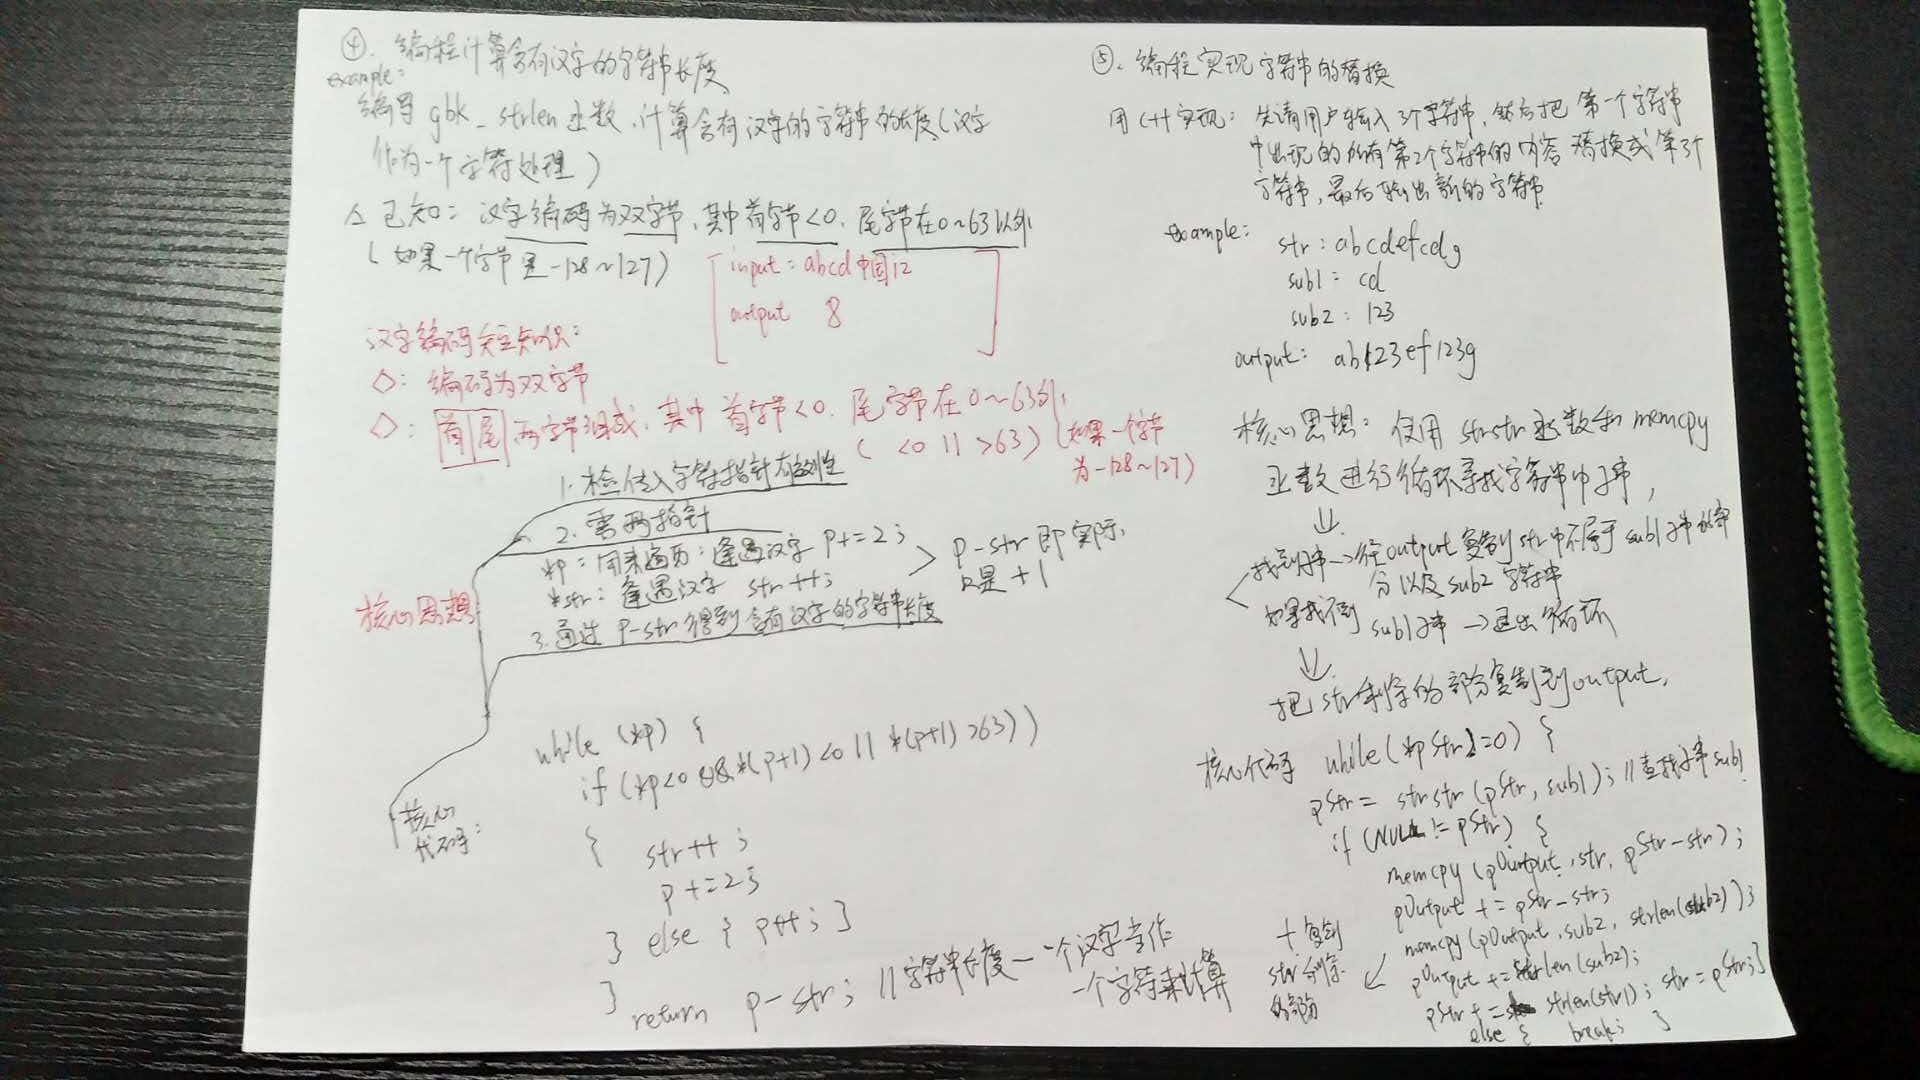 ④. 编程计算含有汉字的字符串长度
example:
编写 gbk_strlen 函数,计算含有汉字的字符串的长度(汉字
作为一个字符处理)
△ 已知: 汉字编码为双字节,其中首字节<0,尾字节在0~63以外
(如果一个字节是-128~127)
input: abcd中国12
output 8
汉字编码关键知识:
◇: 编码为双字节
◇: 首尾两字节组成,其中 首字节<0. 尾字节在0~63外,
( <0 || >63) (如果一个字节
为-128~127)
核心思想
1. 检传入字符指针有效性
2. 需两指针
*p: 用来遍历: 逢遇汉字 p+=2;
*str: 逢遇汉字 str++;
> p-str 即实际,
只是+1
3. 通过 p-str 得到含有汉字的字符串长度
核心
代码:
while (*p) {
if (*p<0 && *(p+1)<0 || *(p+1)>63))
{
str++;
p+=2;
} else { p++; }
}
return p-str; //字符串长度—一个汉字当作
一个字符来计算
⑤. 编程实现字符串的替换
用C++实现: 先请用户输入3个字符串,然后把第一个字符串
中出现的所有第2个字符串的内容替换成第3个
字符串,最后输出新的字符串.
example:
str: abcdefcdg
sub1: cd
sub2: 123
output: ab123ef123g
核心思想: 使用 strstr 函数和 memcpy
函数进行循环寻找字符串中子串,
↓
找到子串→往output复制str中不属于sub1子串的部
分以及sub2字符串
如果找不到 sub1子串→退出循环
↓
把str剩余的部分复制到output,
核心代码 while(*pStr!=0) {
pStr= strstr(pStr, sub1); //查找子串sub1
if (NULL != pStr) {
memcpy (pOutput, str, pStr-str);
pOutput += pStr-str;
memcpy (pOutput, sub2, strlen(sub2));
pOutput += strlen(sub2);
pStr += strlen(str1); str = pStr; }
else { break; }
+复制
str剩余
的部分